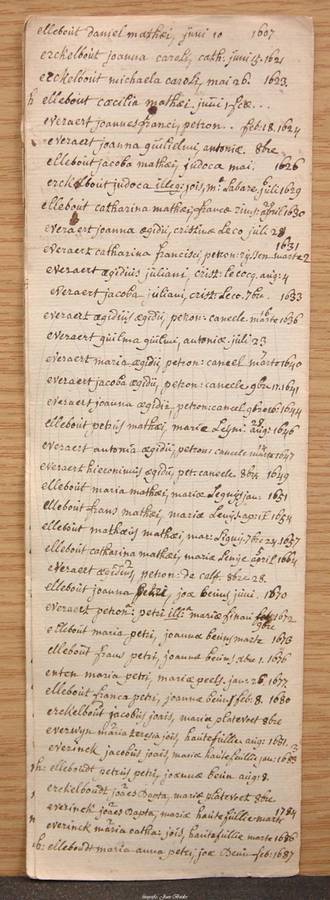 ellebout daniel mathæi, junii 10 1607
erckelbout joanna caroli, cath: junii 13. 1621
erckelbout michaela caroli, mai 26. 1623
h ellebout cæcilia mathæi, junii 1
everaert joannes franci, petron.. feb: 18. 1624
everaert joanna guilielmi antoniæ. 8bre
ellebout jacoba mathæi, judoca mai. 1626
erckelbout judoca illegi jois, Labare, julii 1629
ellebout catharina mathæi, francæ april 1630
everaert joanna ægidii, cristinæ Leco julii 28
1631
everaert catharina francisci petron: marte 2
everaert ægidius juliani, crist: lecocq, aug: 4
everaert jacoba juliani, crist: Leco. 7br. 1633
everaert ægidius ægidii, petron: canecle marte 1636
everaert guilma guilmi, antoniæ: juli 23
everaert maria ægidii, petron: caneel marto 1640
everaert jacoba ægidii, petron: canecle 9bre 11. 1641
everaert joanna ægidii, petron: cancel 9bre 1644
ellebout petrus mathæi, mariæ aug: 1646
everaert antonia ægidii, petron: canecle marte 1647
everaert hieronimus ægidii, pet: caneele 8bre 1649
ellebout maria mathæi, mariæ jan: 1651
ellebout frans mathæi, mariæ april 1654
ellebout mathæus mathæi, mar: 7bre 24 1657
ellebout catharina mathæi, mariæ april 1664
everaert ægidius, petron: de calf: 8bre 28.
ellebout joanna petri, joæ beuns junii. 1670
everaert petron: petri mariæ 1672
8bre
ellebout maria petri, joannæ beuns marte 1673
ellebout frans petri, joannæ beuns xbre 1. 1676
enten maria petri, mariæ peels. jan: 26 1677
ellebout franca petri, joannæ beuns feb: 8. 1680
erckelbout jacobus joais, maria platevoet 8bre
everwijn maria teresa jois, hautefullie aug: 1681.
everinck jacobus joais, mariæ hautefullie jan: 1683
h: elleboudt petrus petri, joannæ beun aug: 8.
erckelboudt joães Bapta, mariæ platevoet 8bre
everinck joães Bapta, mariæ hautefullie marte 1784
everinck maria catha: jois, hautafullie marte 1686
h: elleboudt maria anna petri, joæ Beun feb: 1687.